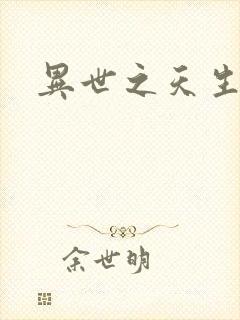 異世之天生
余世明